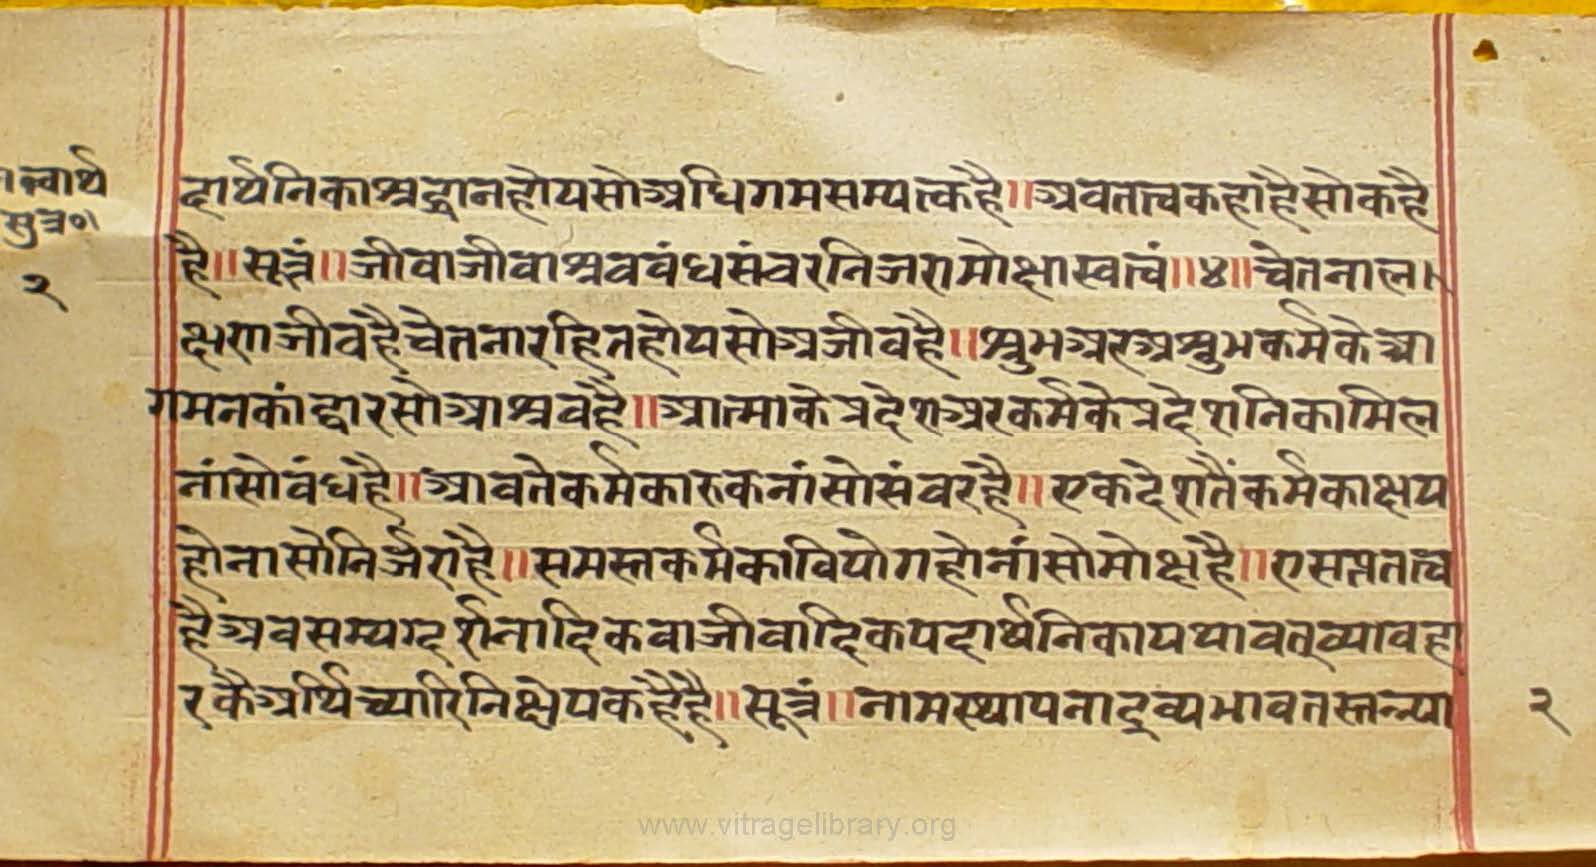 तत्त्वार्थ
सुत्र०।
२
दार्थनिकाश्रद्धानहोयसोअधिगमसम्यत्त्कहै॥अवतत्त्वकहांहैसोकहै
है॥सूत्रं॥जीवाजीवाश्रववंधसंवरनिजरामोक्षास्वत्त्वं॥४॥चेतनाल।
क्षणजीवहैचेतनारहितहोयसोअजीवहै॥श्रुभअरअश्रुभकर्मकेआ
गमनकांद्वारसोआश्रवहै॥आत्माकेप्रदेशअरकर्मकेप्रदेशनिकामिल
नांसोवंधहै॥आवतेकर्मकारुकनांसोसंवरहै॥एकदेशतैंकर्मकाक्षय
होनासोनिर्जराहै॥समस्तकर्मकावियोगहोनांसोमोक्षहै॥एसप्ततत्त्व
हैअवसम्यग्दर्शनादिकवाजीवादिकपदार्थनिकायथावत्व्यावहा
रकैअर्थिच्यारिनिक्षेपकहैहै॥सूत्रं॥नामस्थापनाद्रव्यभावतस्तन्न्या
२
www.vitragelibrary.org